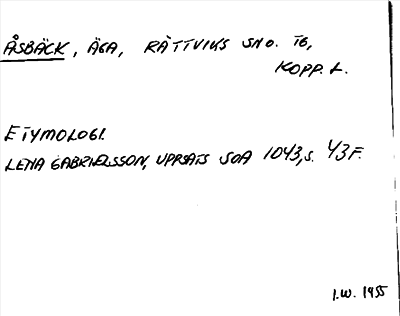 ÅSBÄCK, ÄGA, RÄTTVIKS SNO. TG,
KOPP. L.
ETYMOLOGI.
LENA GABRIELSSON, UPPSATS SOA 1043, S. 43 F.
I.W. 1955